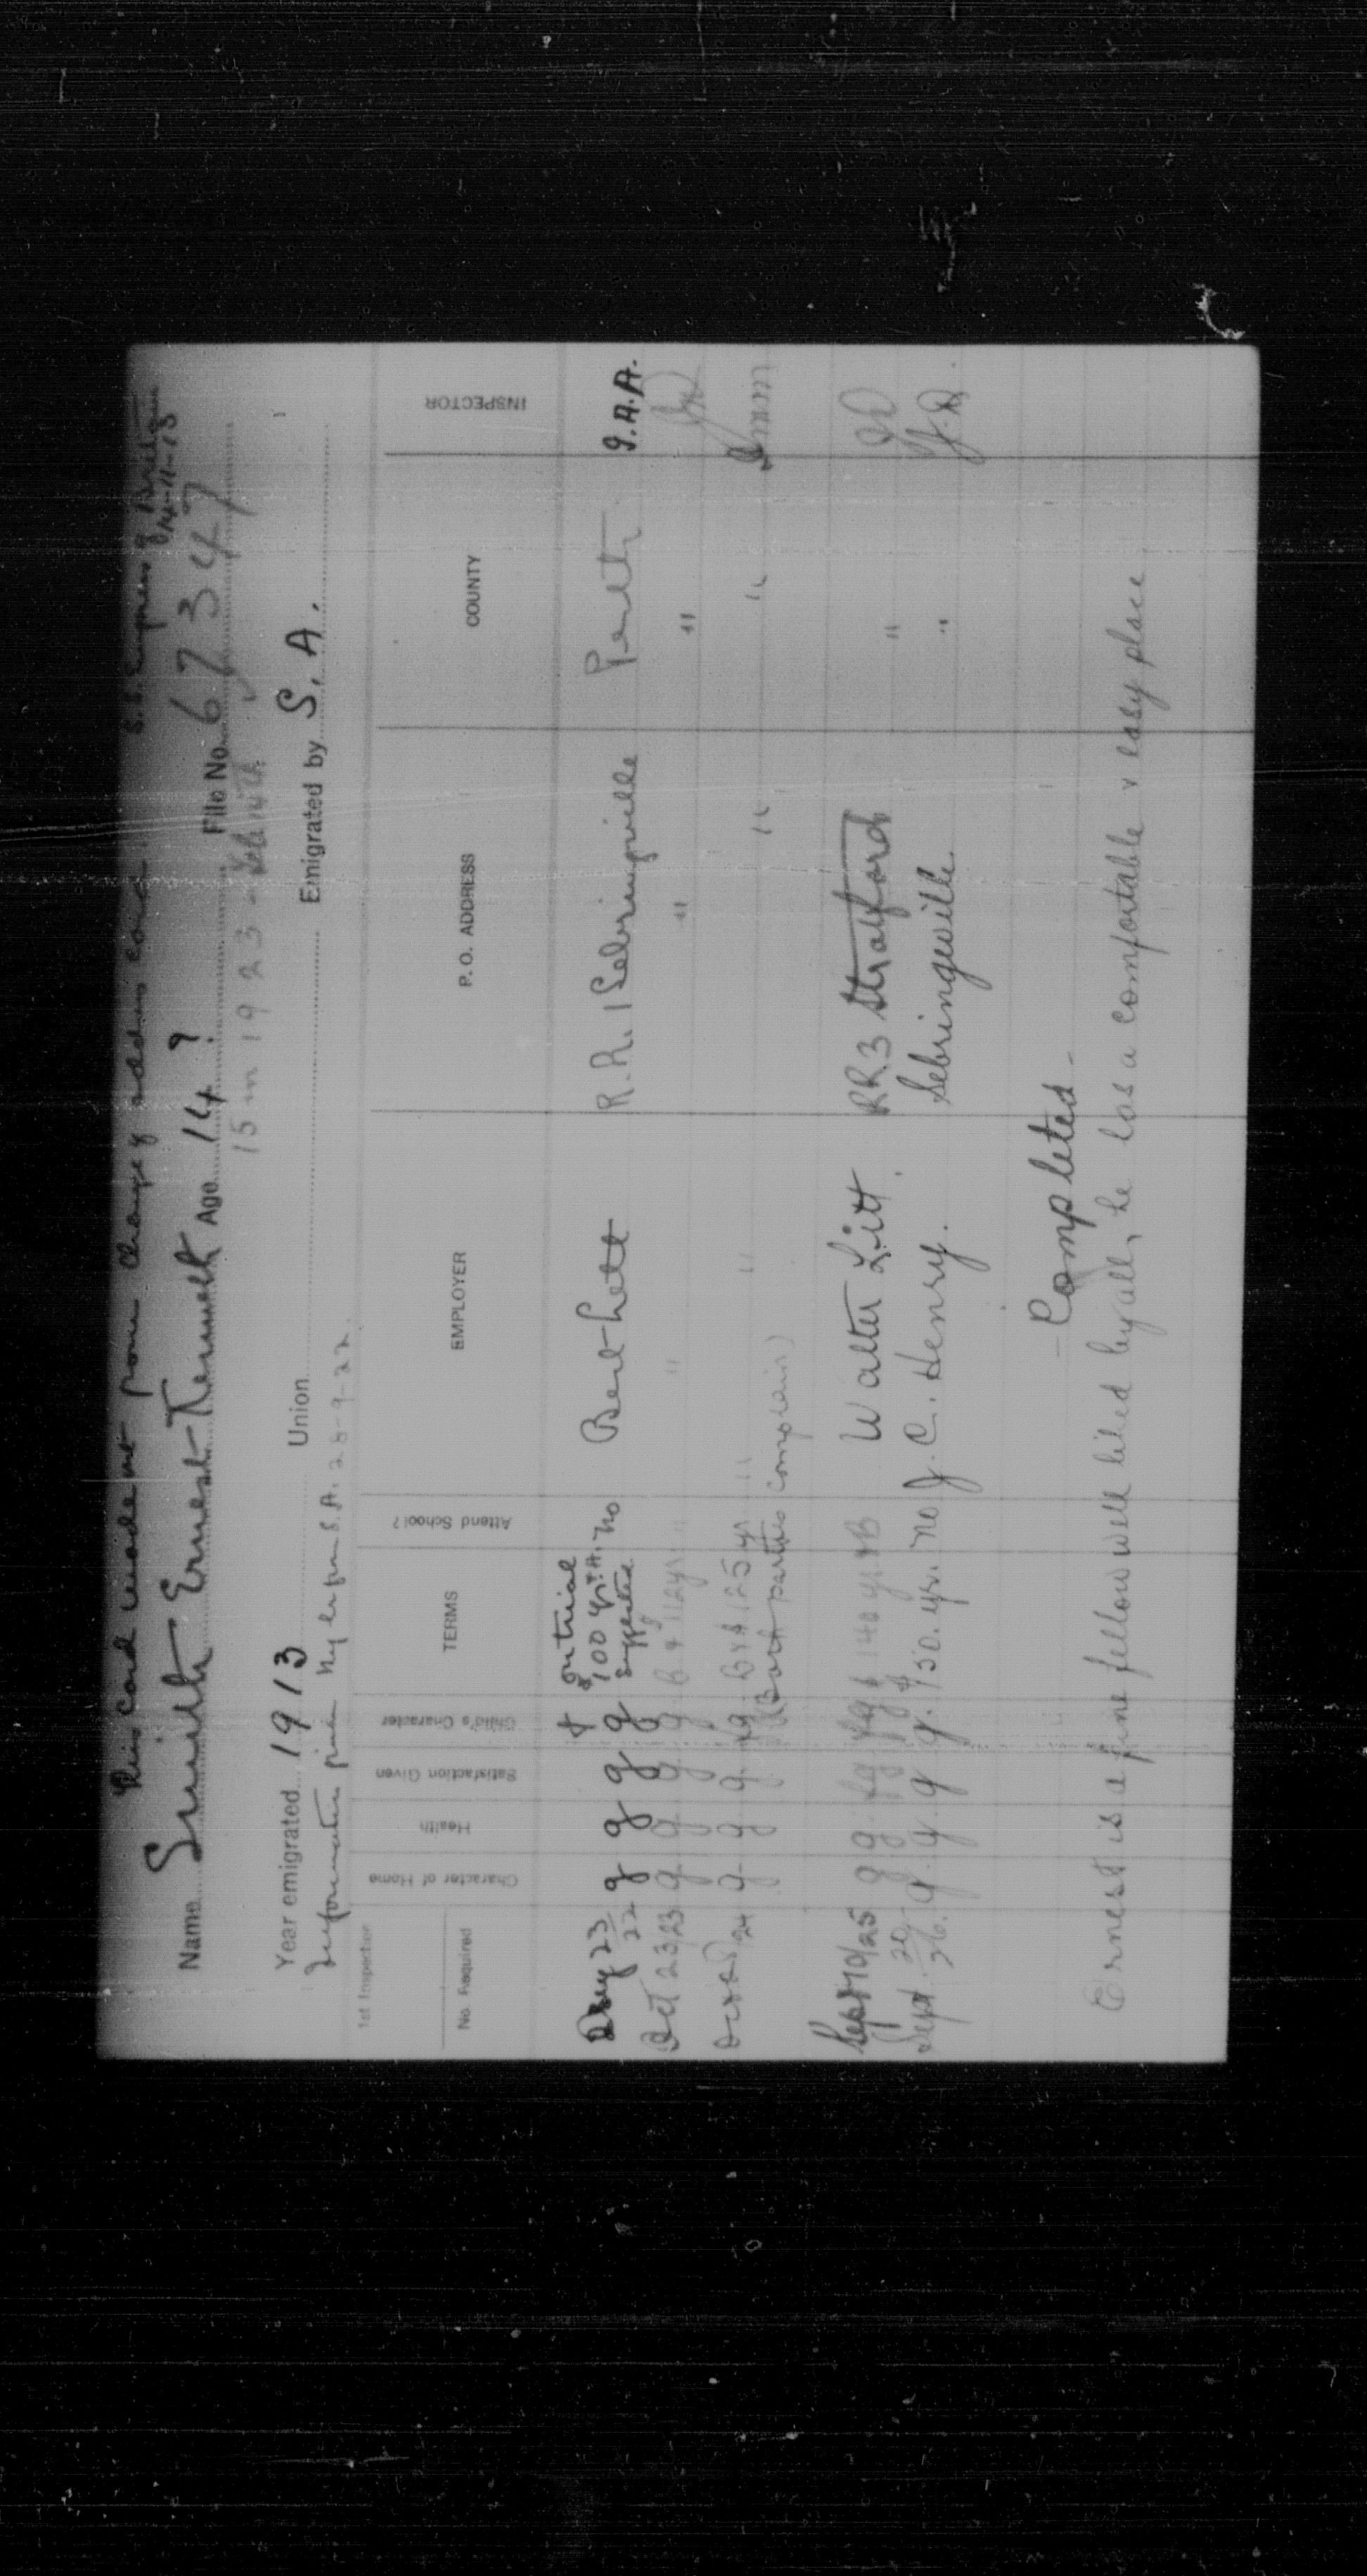 This card made out from Change of address card. S.S. Empress of Britain
14-11-13
Name Smith Ernest Kenneth Age 14 ? File No. 67347
15 in 1923 - Feb 14th
Year emigrated 1913 Union Emigrated by S. A.
Information given by S.A. 28-9-22.
1st Inspection
No. Required Character of Home Health Satisfaction Given Child's Character TERMS Attend School? EMPLOYER P. O. ADDRESS COUNTY INSPECTOR
f on trial
23/22 g g g g $100 yr. suggested no Bert Lett R.R.1 Sebringville Perth G.A.A.
Oct 23/23 g g g g " " " "
24 g g g fg B & 125 yr " " " "
(Both parties complain)
Sept 10/25 g g fg fg $140 yr & B Walter Litt. RR3 Stratford " JD
Sept. 20/26. g. g. g g. $150. yr. no J. C. Henry. Sebringville. " J.D.
- Completed -
Ernest is a fine fellow well liked by all, he has a comfortable & easy place